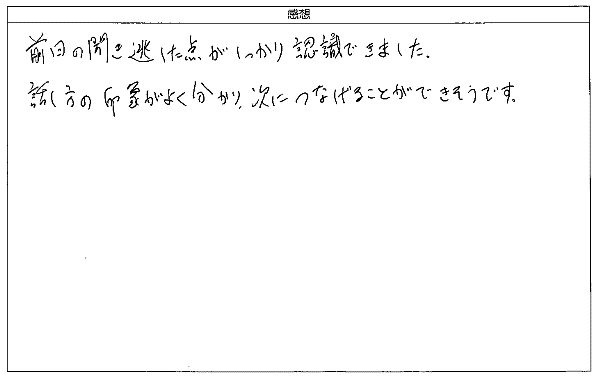 感想
前日の聞き逃した点がしっかり認識できました.
話し方の印象がよく分かり、次につなげることができそうです。